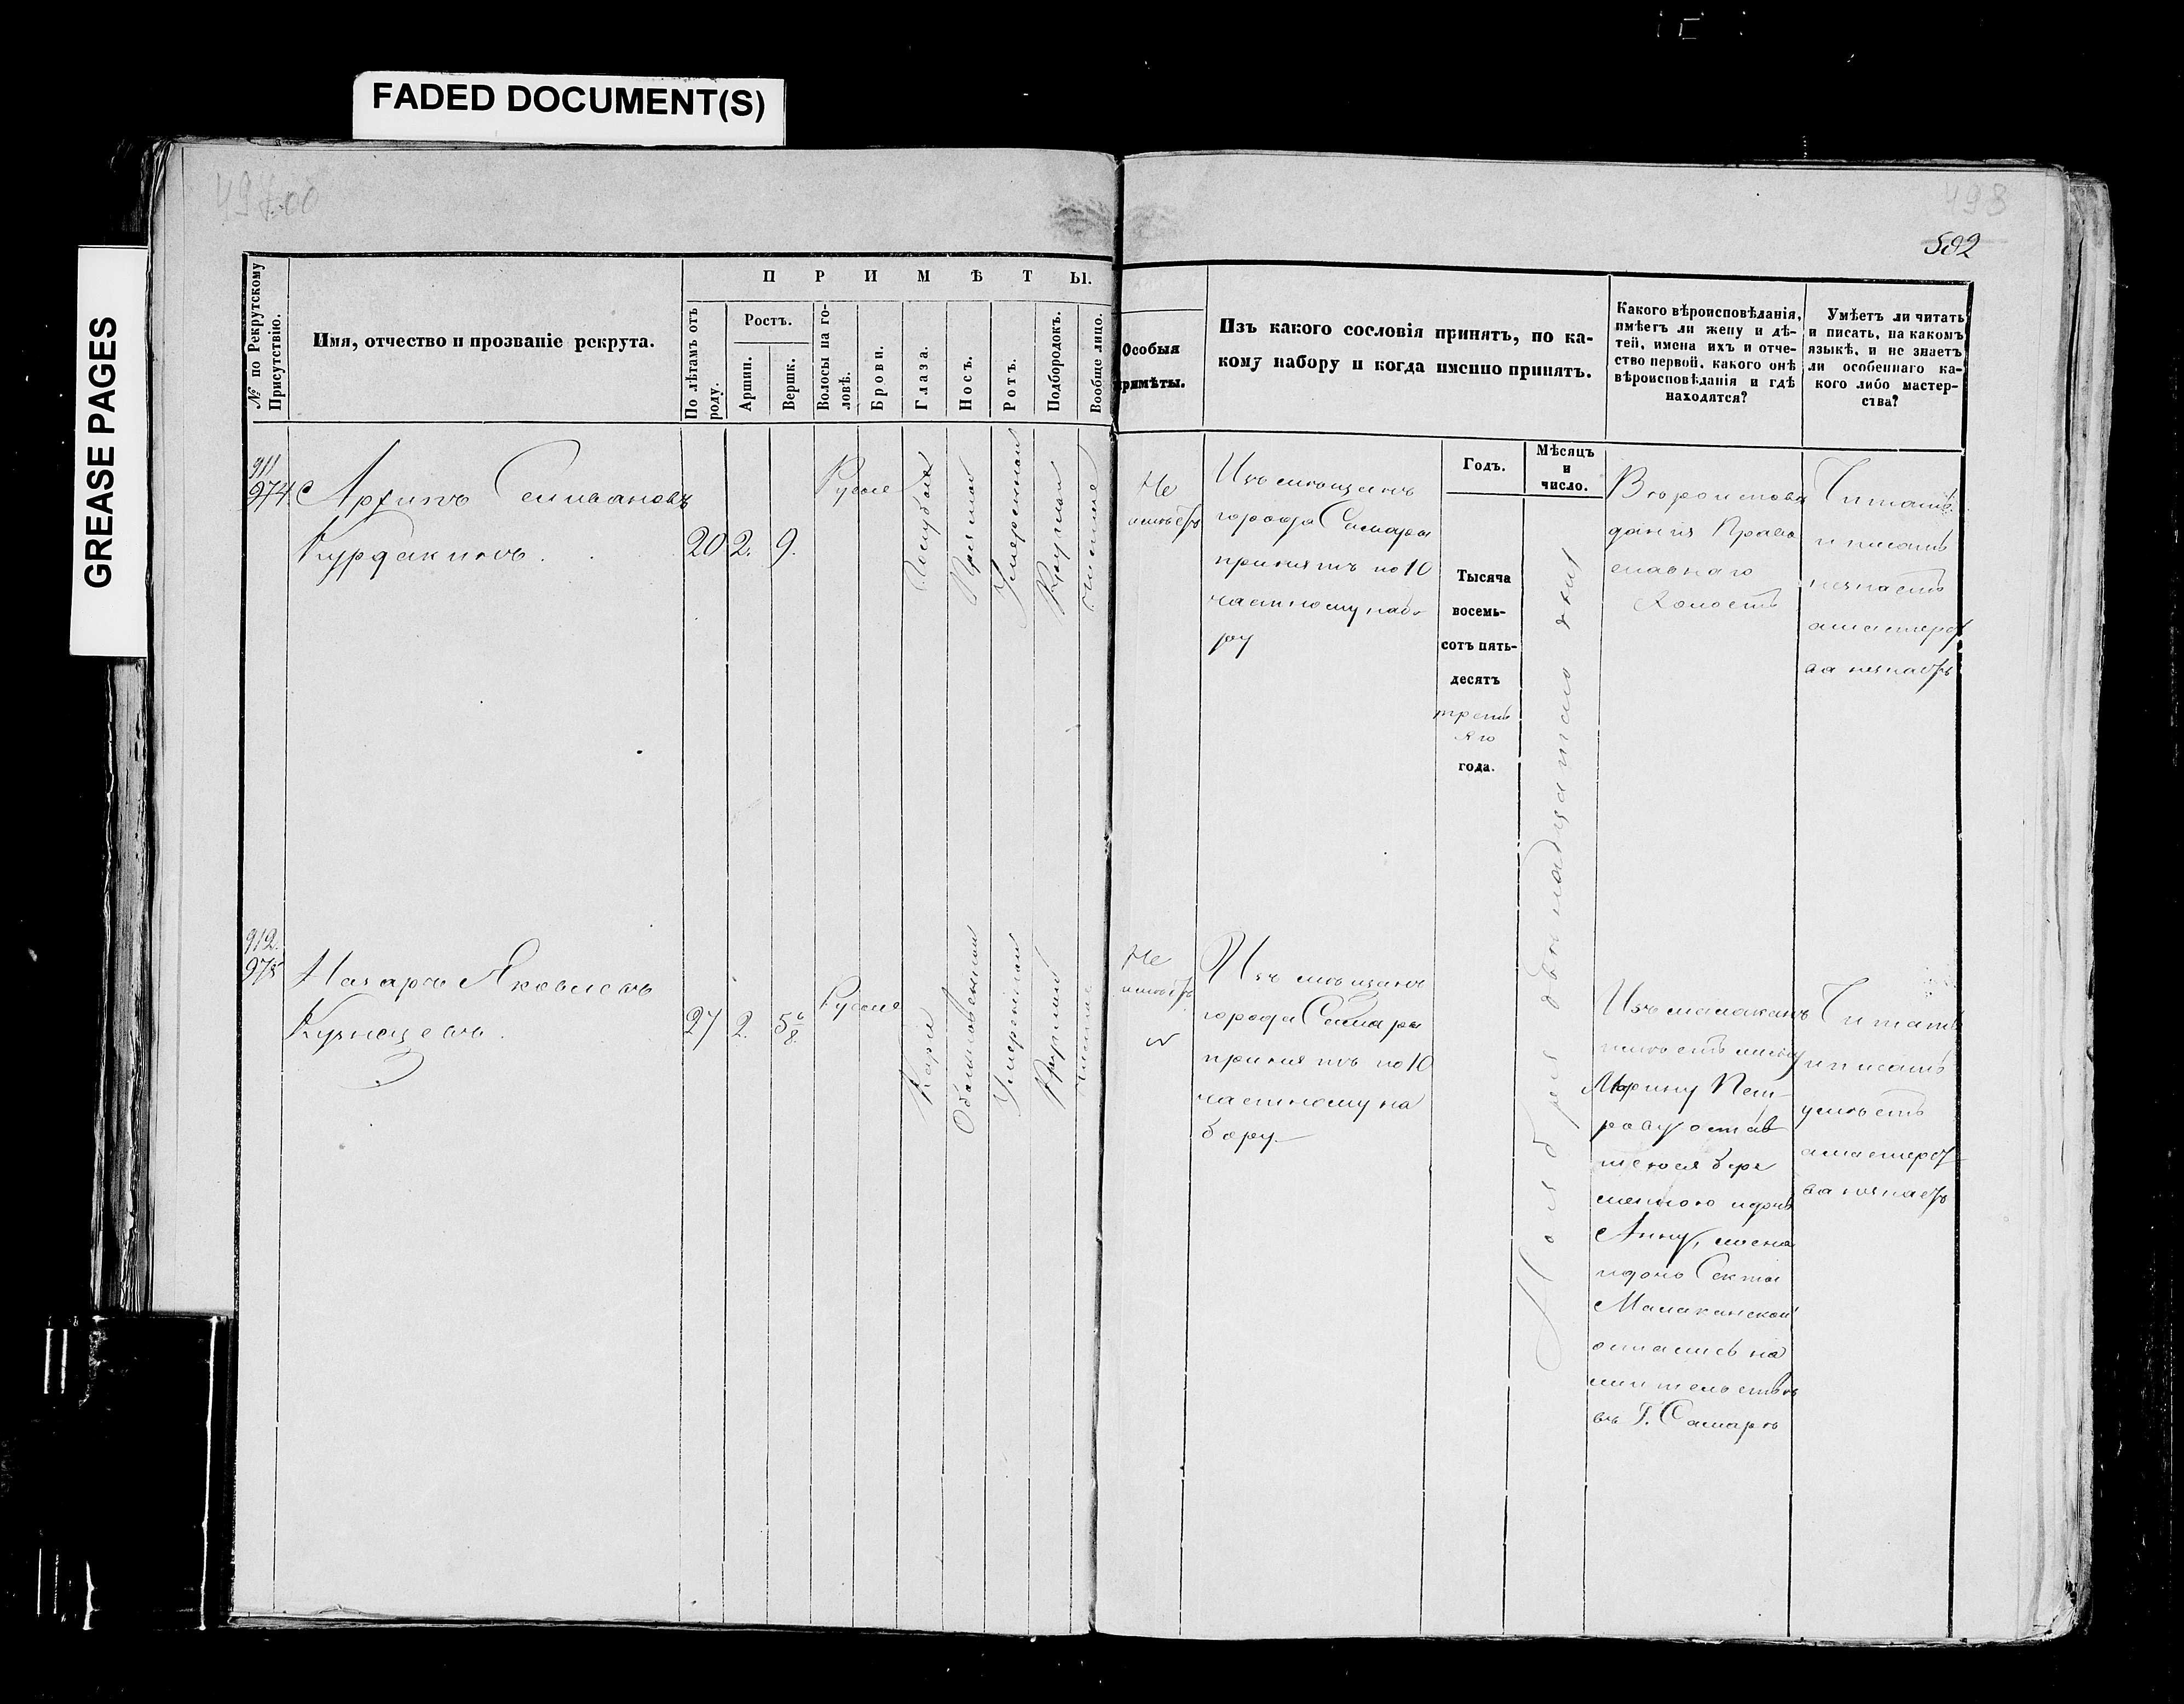 FADED DOCUMENT(S)
GREASE PAGES
498
592
№ по Рекрутскому Присутствію.
Имя, отчество и прозваніе рекрута.
ПРИМѢТЫ.
По лѣтамъ отъ роду.
Ростъ.
Аршин.
Вершк.
Волосы на головѣ.
Брови.
Глаза.
Носъ.
Ротъ.
Подбородокъ.
Вообще лицо.
Особыя
примѣты.
Изъ какого сословія принятъ, по ка-
кому набору и когда именно принятъ.
Какого вѣроисповѣданія,
имѣетъ ли жену и дѣ-
тей, имена ихъ и отче-
ство первой, какого онѣ
вѣроисповѣданія и гдѣ
находятся?
Умѣетъ ли читать
и писать, на какомъ
языкѣ, и не знаетъ
ли особеннаго ка-
кого либо мастер-
ства?
Годъ.
Мѣсяцъ
и
число.
911
974
Архипъ Селивановъ
Курдакинъ.
20
2.
9.
Русые
Голубые
Прямой
Умеренный
Круглый
Чистое
Не
имѣетъ
Изъ мѣщанъ
города Самары
принятъ по 10
частному набо
ру
Тысяча
восемь-
сотъ пять-
десятъ
треть
яго
года.
Ноября двенадцатаго дня
Вѣроисповѣ
данія Право
славнаго
Холостъ
Читать
и писать
незнаетъ
а мастерст
ва незнаетъ
912.
975
Назаръ Яковлевъ
Кузнецовъ.
27
2.
5 6/8
Русые
Карие
Обыкновенный
Умеренный
Круглый
Чистое
Не
имѣетъ
Изъ мѣщанъ
города Самары
принятъ по 10
частному на
бору
Изъ малаканъ
имѣетъ жену
Марину Пет-
рову остав
шеюся бере
менною и дочь
Анну, жена
и дочь Секты
Малаканской
остались на
жительствѣ
въ Г. Самарѣ
Читать
и писать
умѣетъ
а мастерст
ва незнаетъ